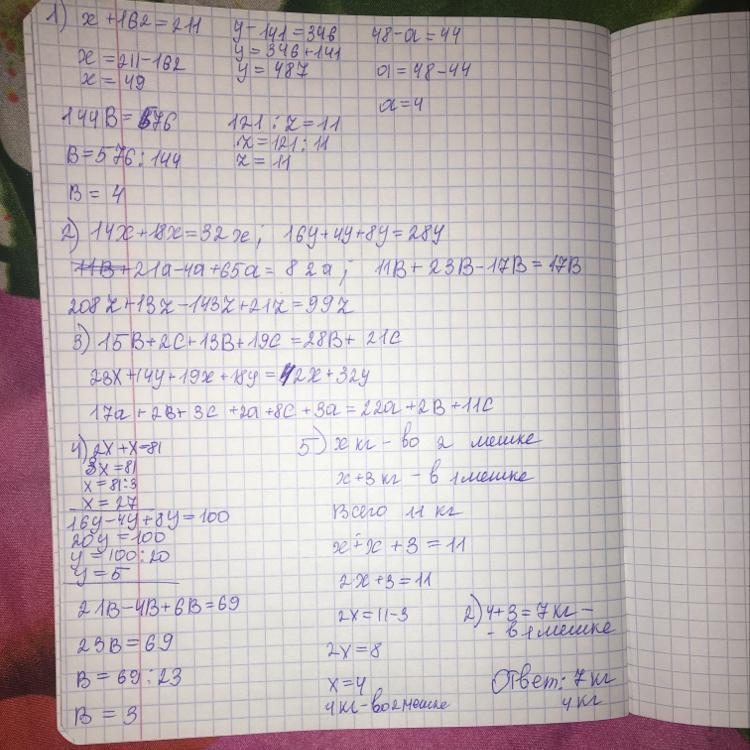 1) x+162=211
x=211-162
x=49
y-141=346
y=346+141
y=487
48-a=44
a=48-44
a=4
144B=576
B=576:144
B=4
121:z=11
z=121:11
z=11
2) 14x+18x=32x; 16y+4y+8y=28y
11B+21a-4a+65a=82a; 11B+23B-17B=17B
208z+13z-143z+21z=99z
3) 15B+2C+13B+19C=28B+21C
23x+14y+19x+18y=42x+32y
17a+2B+3C+2a+8C+3a=22a+2B+11C
4) 2x+x=81
3x=81
x=81:3
x=27
16y-4y+8y=100
20y=100
y=100:20
y=5
21B-4B+6B=69
23B=69
B=69:23
B=3
5) x кг - во 2 мешке
x+3 кг - в 1 мешке
Всего 11 кг
x+x+3=11
2x+3=11
2x=11-3
2x=8
x=4
4 кг - во 2 мешке
2) 4+3=7 кг -
- в 1 мешке
Ответ: 7 кг
4 кг